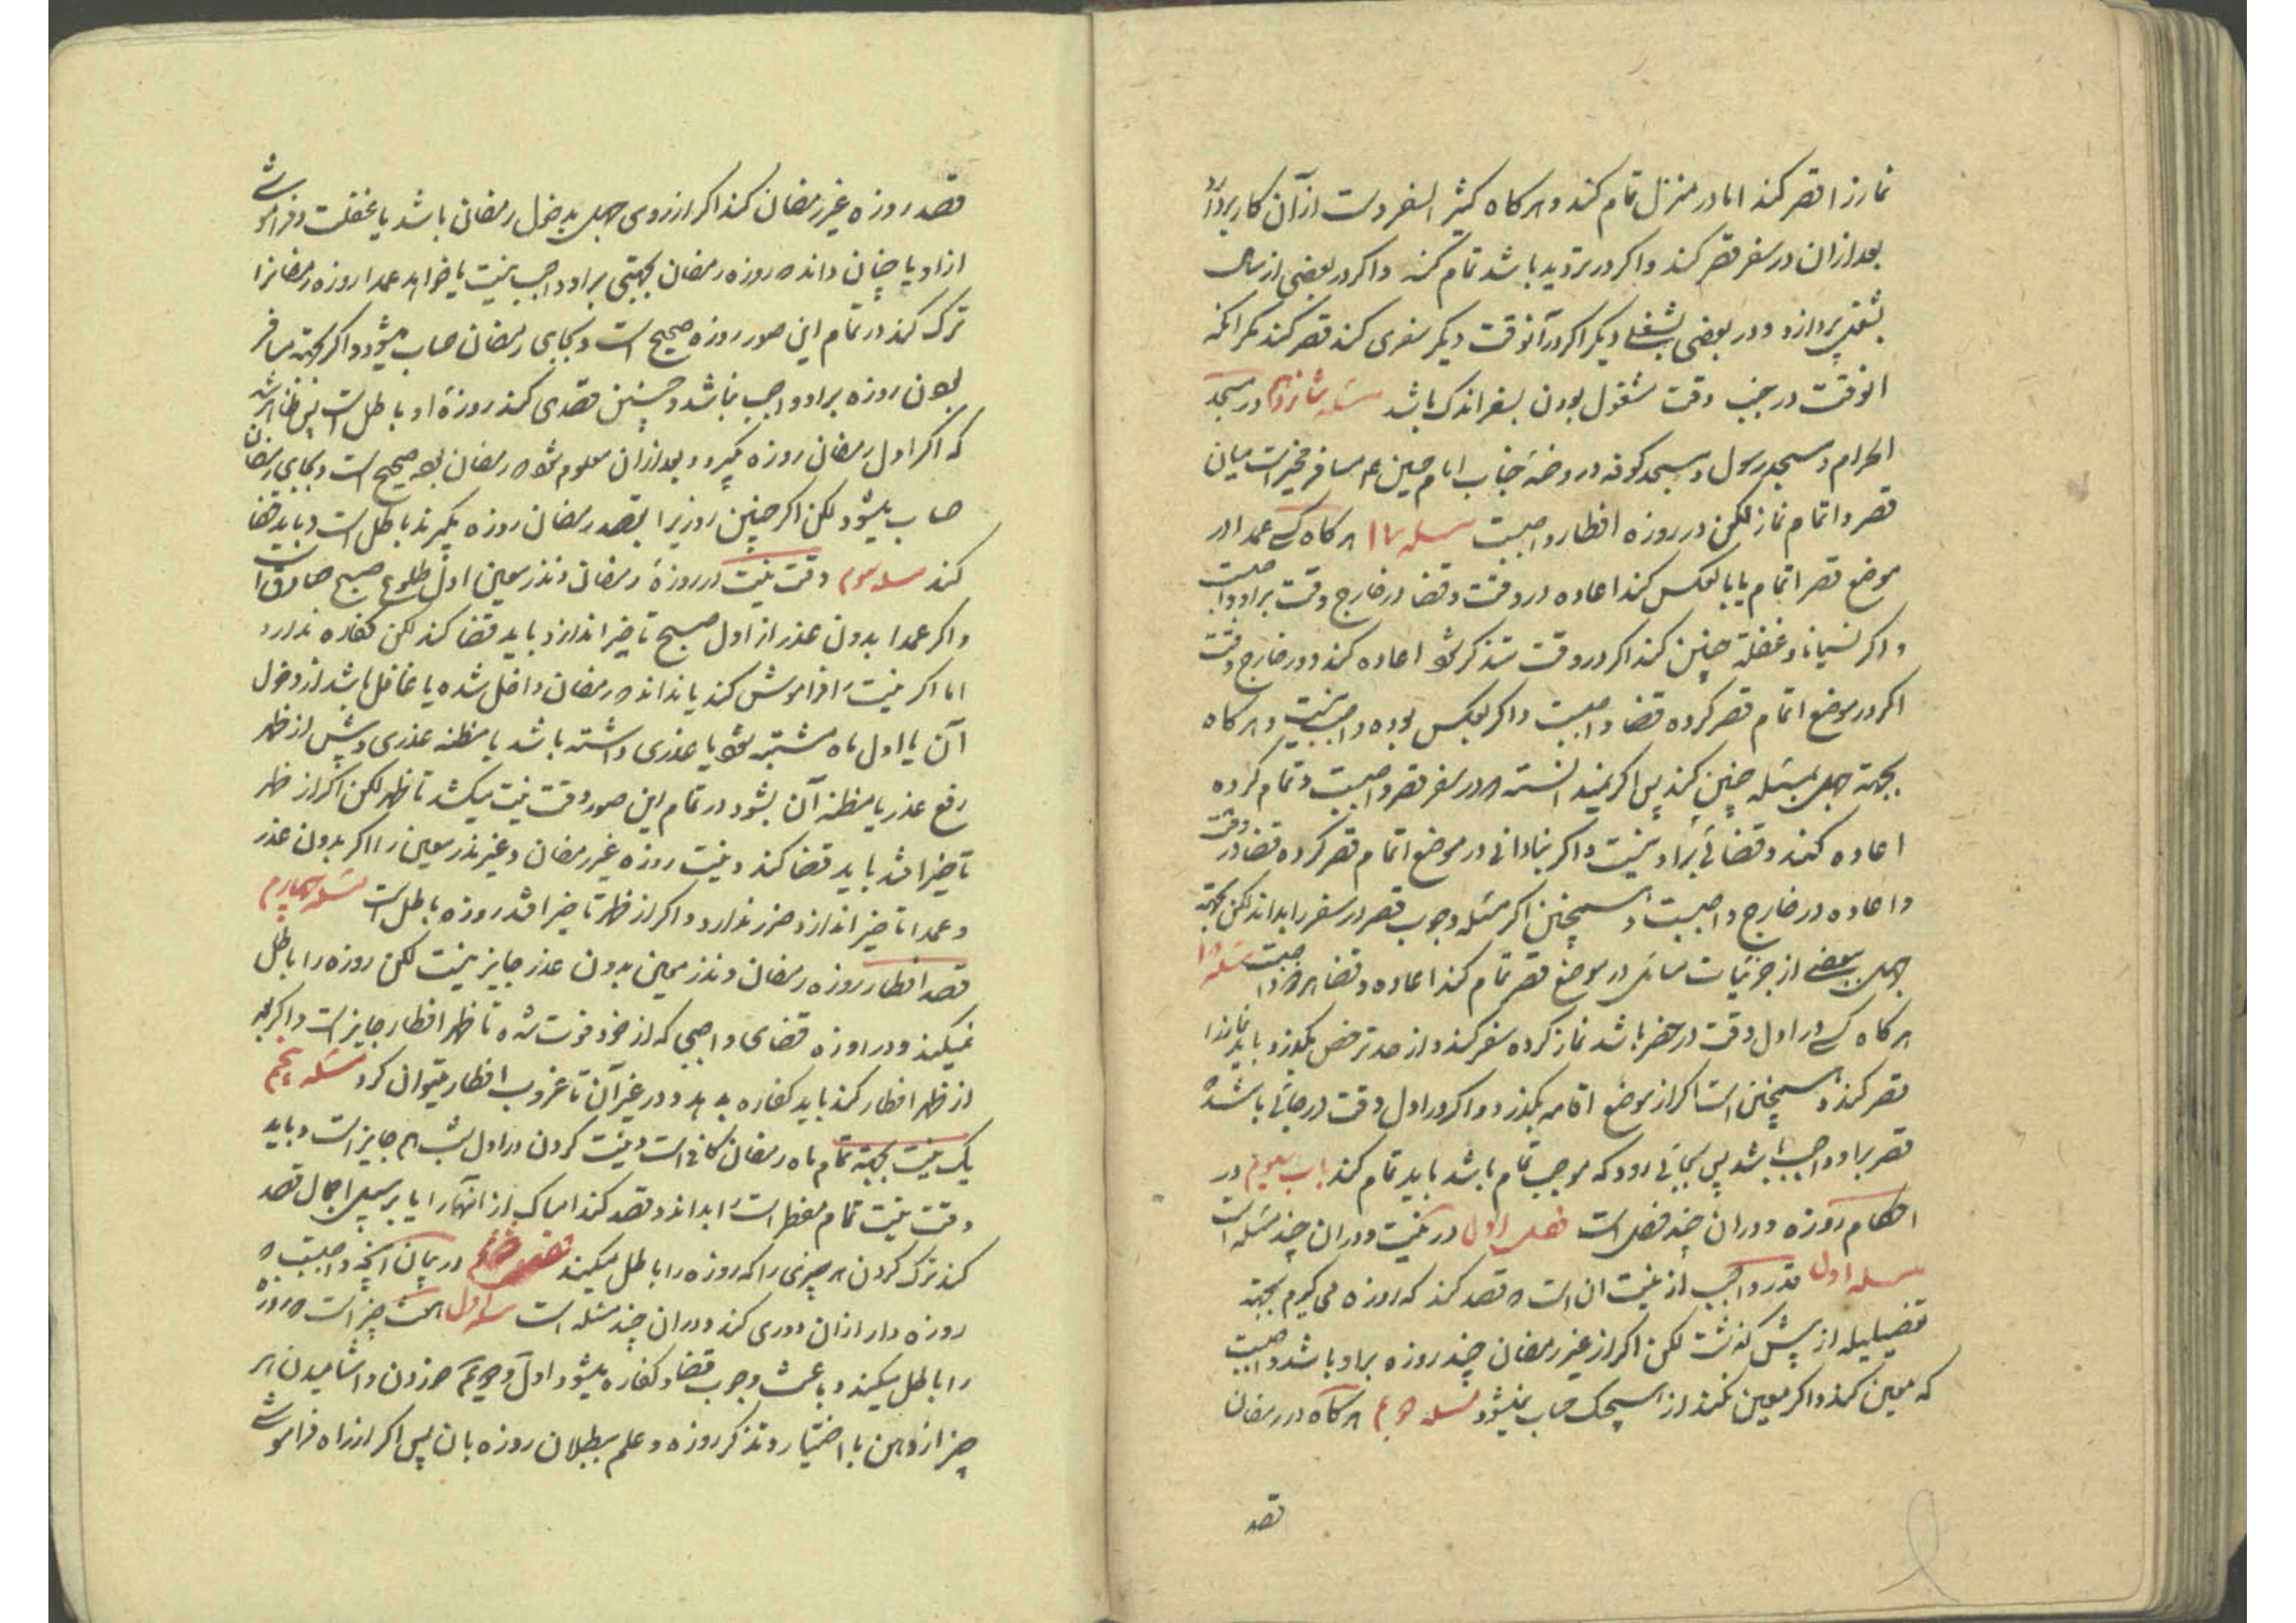 نماز را قصر کند اما در منزل تمام کند و هرکاه کثیر السفر دست از آن کار بردارد
بعد ازان در سفر قصر کند و اکر در تردید باشد تمام کند و اکر در بعضی از سال
بشغلی پردازد و در بعضی بشغلی دیکر اکر در آنوقت دیکر سفری کند قصر کند مکر انکه
انوقت در جنب وقت مشغول بودن بسفر اندک باشد مسئله شانزدهم در مسجد
الحرام و مسجد رسول و مسجد کوفه و روضهٔ جناب امام حسین ع مسافر مخیر است میان
قصر و اتمام نماز لکن در روزه افطار واجبست مسئله ۱۷ هرکاه کسی عمدا در
موضع قصر اتمام یا بالعکس کند اعاده در وقت و قضا در خارج وقت بر او واجبست
و اکر نسیانا و غفلة چنین کند اکر در وقت متذکر شود اعاده کند و در خارج وقت
اکر در موضع اتمام قصر کرده قضا واجبست و اکر بعکس بوده واجب نیست و هرکاه
بجهة جهل بمسئله چنین کند پس اکر نمیدانسته که در سفر قصر واجبست و تمام کرده
اعاده کند و قضائی بر او نیست و اکر بنادانی در موضع اتمام قصر کرده قضا در وقت
و اعاده در خارج واجبست و همچنین اکر مسئله وجوب قصر در سفر را بداند لکن بجهة
جهل ببعضی از جزئیات مسائل در موضع قصر تمام کند اعاده و قضا هر دو واجبست مسئله ۱۸
هرکاه کسی در اول وقت در حضر باشد نماز کرده سفر کند و از حد ترخص بکذرد باید نماز را
قصر کند و همچنین است اکر از موضع اقامه بکذرد و اکر در اول وقت در جائی باشد که
قصر بر او واجب باشد پس بجائی رود که موجب تمام باشد باید تمام کند باب سیوم در
احکام روزه و دران چند فصل است فصل اول در نیت و دران چند مسئله است
مسئله اول قدر واجب از نیت ان است که قصد کند که روزه می کیرم بجهة
تفصیلیکه از پیش کذشت لکن اکر از غیر رمضان چند روزه بر او باشد واجبست
که معین کند و اکر معین نکند از هیچیک حساب نمیشود مسئله دویم هرکاه در رمضان
قصد
قصد روزه غیر رمضان کند اکر از روی جهل بدخول رمضان باشد یا غفلت و فراموشی
ازاو یا چنان داند که روزه رمضان بجهتی بر او واجب نیست یا خواهد عمدا روزه رمضانرا
ترک کند در تمام این صور روزه صحیح است و بجای رمضان حساب میشود و اکر بجهة مسافر
بودن روزه بر او واجب نباشد و چنین قصدی کند روزهٔ او باطل است پس ظاهر شد
که اکر اول رمضان روزه کیرد و بعد ازان معلوم شود که رمضان بوده صحیح است و بجای رمضان
حساب میشود لکن اکر چنین روزیرا بقصد رمضان روزه بکیرند باطل است و باید قضا
کند مسئله سوم وقت نیت در روزهٔ رمضان و نذر معین اول طلوع صبح صادق است
و اکر عمدا بدون عذر از اول صبح تاخیر اندازد باید قضا کند لکن کفاره ندارد
اما اکر نیت را فراموش کند یا نداند که رمضان داخل شده یا غافل باشد از دخول
آن یا اول ماه مشتبه شود یا عذری داشته باشد یا مظنه عذری و پیش از ظهر
رفع عذر یا مظنه آن بشود در تمام این صور وقت نیت میکشد تا ظهر لکن اکر از ظهر
تاخیر افتد باید قضا کند و نیت روزه غیر رمضان و غیر نذر معین را اکر بدون عذر
و عمدا تاخیر اندازد ضرر ندارد و اکر از ظهر تاخیر افتد روزه باطل است مسئله چهارم
قصد افطار روزه رمضان و نذر معین بدون عذر جایز نیست لکن روزه را باطل
نمیکند و در روزه قضای واجبی که از خود فوت شده تا ظهر افطار جایز است و اکر بعد
از ظهر افطار کند باید کفاره بدهد و در غیر آن تا غروب افطار میتوان کرد مسئله پنجم
یک نیت بجهة تمام ماه رمضان کافی است و نیت کردن در اول شب هم جایز است و باید
وقت نیت تمام مفطرات را بداند و قصد کند امساک از انها را یا بر سبیل اجمال قصد
کند ترک کردن هر چیزی را که روزه را باطل میکند فصل دویم در بیان آنچه واجبست که
روزه دار ازان دوری کند و دران چند مسئله است مسئله اول هشت چیز است که روزه
را باطل میکند و باعث وجوب قضا و کفاره میشود اول و دویم خوردن و اشامیدن هر
چیز از دهن با اختیار و تذکر روزه و علم ببطلان روزه بان پس اکر از راه فراموشی